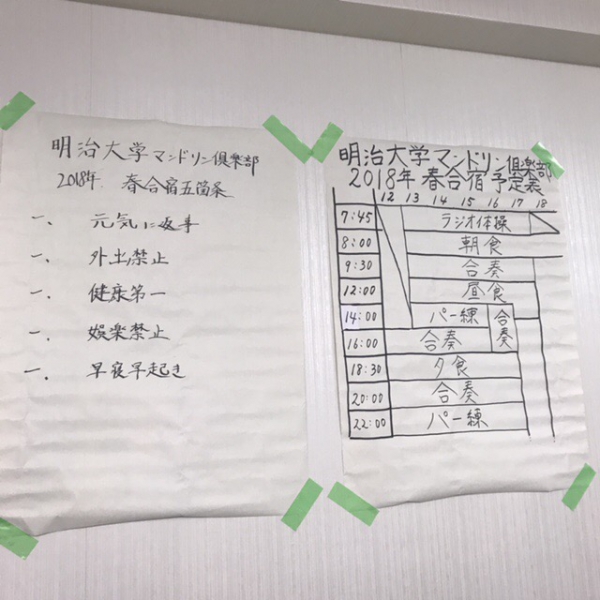 明治大学マンドリン倶楽部
2018年 春合宿五箇条
一、元気に返事
一、外出禁止
一、健康第一
一、娯楽禁止
一、早寝早起き
明治大学マンドリン倶楽部
2018年 春合宿 予定表
12 13 14 15 16 17 18
7:45 ラジオ体操
8:00 朝食
9:30 合奏
12:00 昼食
14:00 パー練 合奏
16:00 合奏
18:30 夕食
20:00 合奏
22:00 パー練